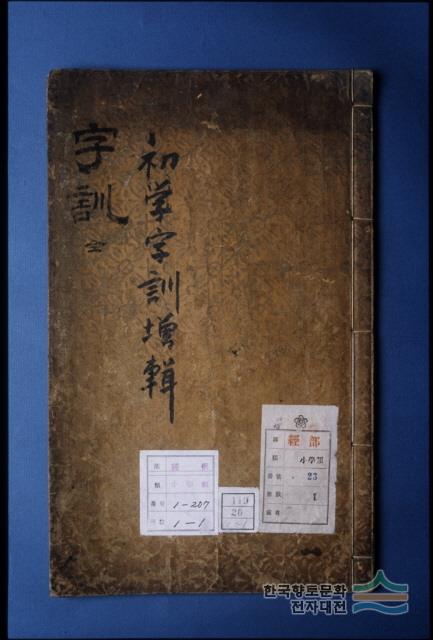 字訓 全
初學字訓增輯
部
類 小學類
番号 1-207
冊数 1-1
113
20
1-1
部 經部
類 小學類
番號 23
冊數 1
한국향토문화
전자대전